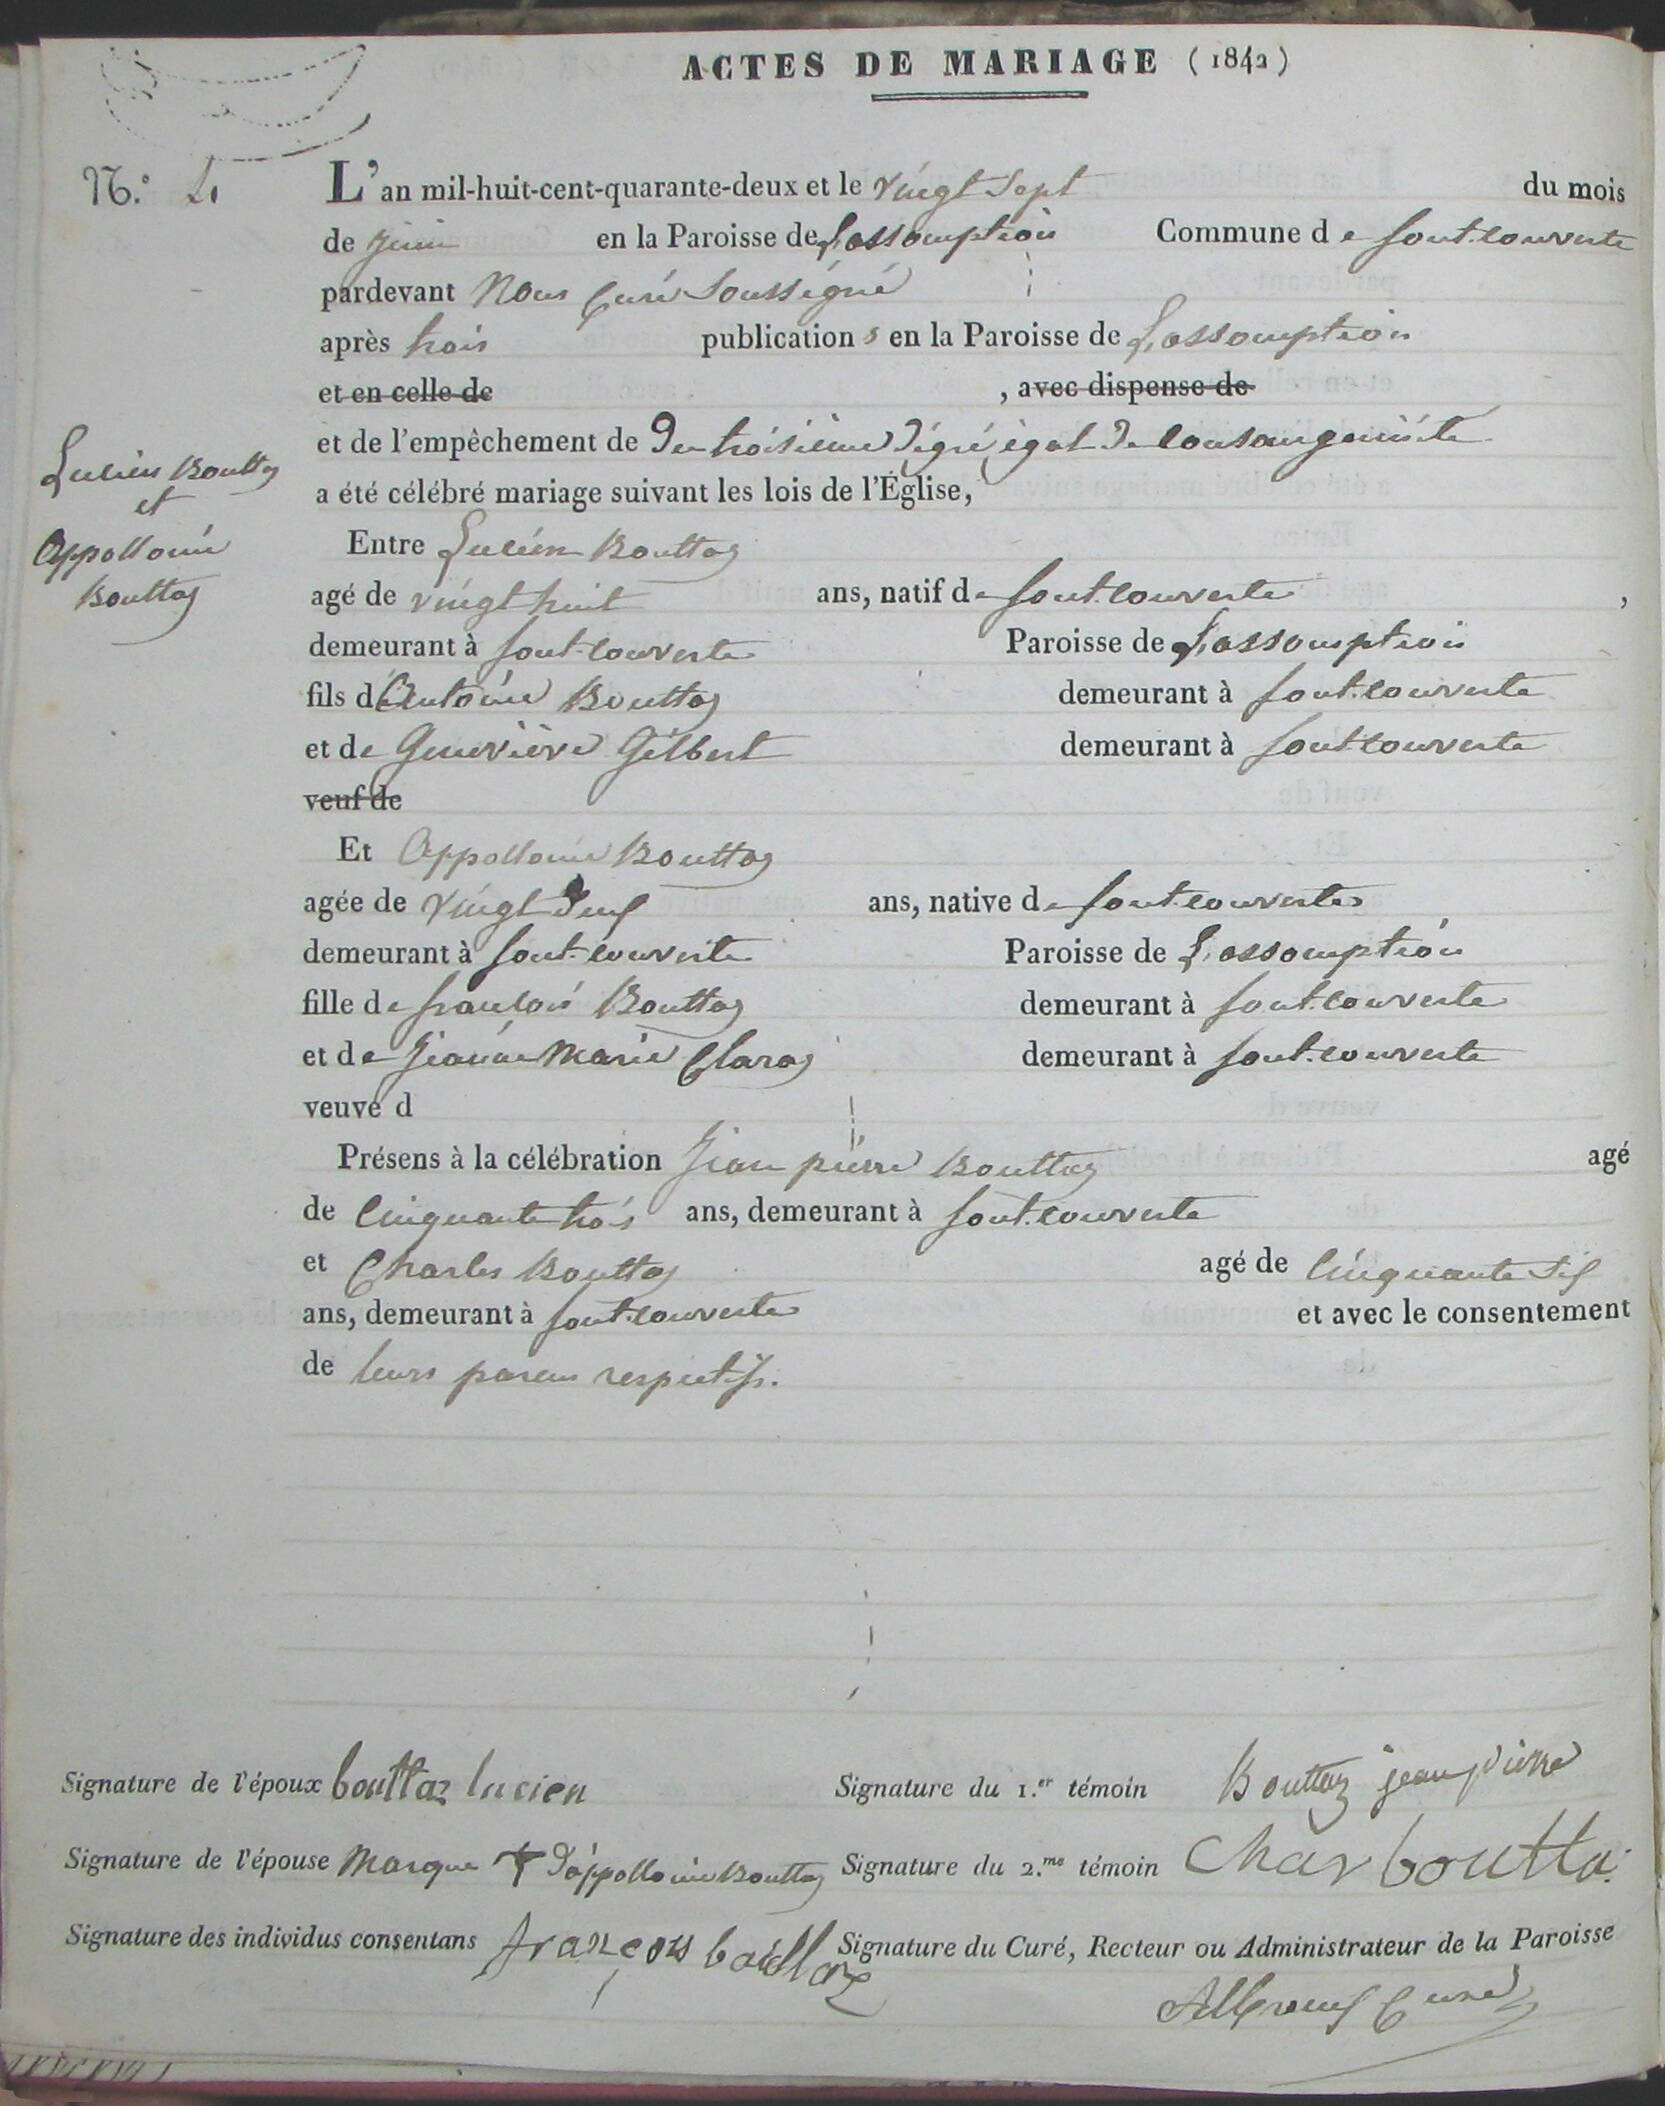 ACTES DE MARIAGE (1842)
N.º 4
L'an mil-huit-cent-quarante-deux et le vingt sept du mois
de juin en la Paroisse de L'assomption Commune de font-couverte
pardevant Nous Curé Soussigné
après trois publications en la Paroisse de L'assomption
et en celle de , avec dispense de
et de l'empêchement de Du troisième dégré égal de consanguinité
a été célébré mariage suivant les lois de l'Église,
Lucien Bouttaz
et
Appollonie
Bouttaz
Entre Lucien Bouttaz
agé de vingt huit ans, natif de font-couverte ,
demeurant à font-couverte Paroisse de L'assomption
fils d'Antoine Bouttaz demeurant à font-couverte
et de Geneviève Gilbert demeurant à font-couverte
veuf de
Et Appollonie Bouttaz
agée de vingt deux ans, native de font-couverte
demeurant à font-couverte Paroisse de L'assomption
fille de françois Bouttaz demeurant à font-couverte
et de Jeanne Marie Claraz demeurant à font-couverte
veuve d
Présens à la célébration Jean pierre Bouttaz agé
de Cinquante trois ans, demeurant à font-couverte
et Charles Bouttaz agé de Cinquante six
ans, demeurant à font-couverte et avec le consentement
de leurs parens respectifs.
Signature de l'époux bouttaz lucien Signature du 1.er témoin Bouttaz jean pierre
Signature de l'épouse Marque + d'appollonie Bouttaz Signature du 2.me témoin Char boutta
Signature des individus consentans françois bouttaz Signature du Curé, Recteur ou Administrateur de la Paroisse
Curé